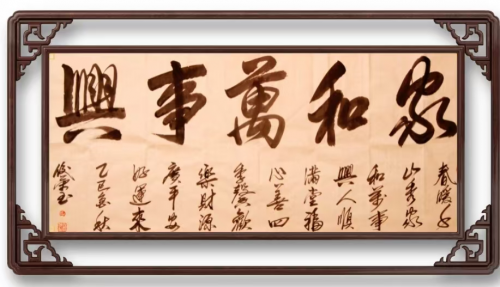 家和萬事興
春暖千
山秀家
和萬事
興人順
滿堂福
心善四
季馨歡
樂財源
廣平安
好運來
秋